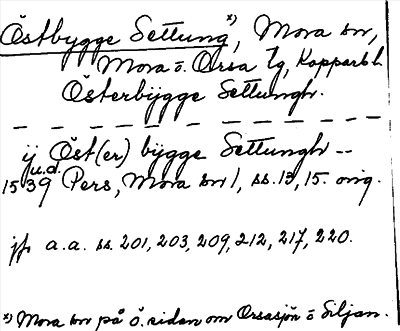 Östbygge Settung x), Mora sn,
Mora o. Orsa tg, Kopparb. l.
Österbÿgge Settungh.
ÿ Öst(er) bÿgge Settungh --
u.d.
1539 Pers, Mora sn 1, ss. 13, 15. orig.
jfr a.a. ss. 201, 203, 209, 212, 217, 220.
x) Mora sn på ö. sidan om Orsasjön o Siljan.